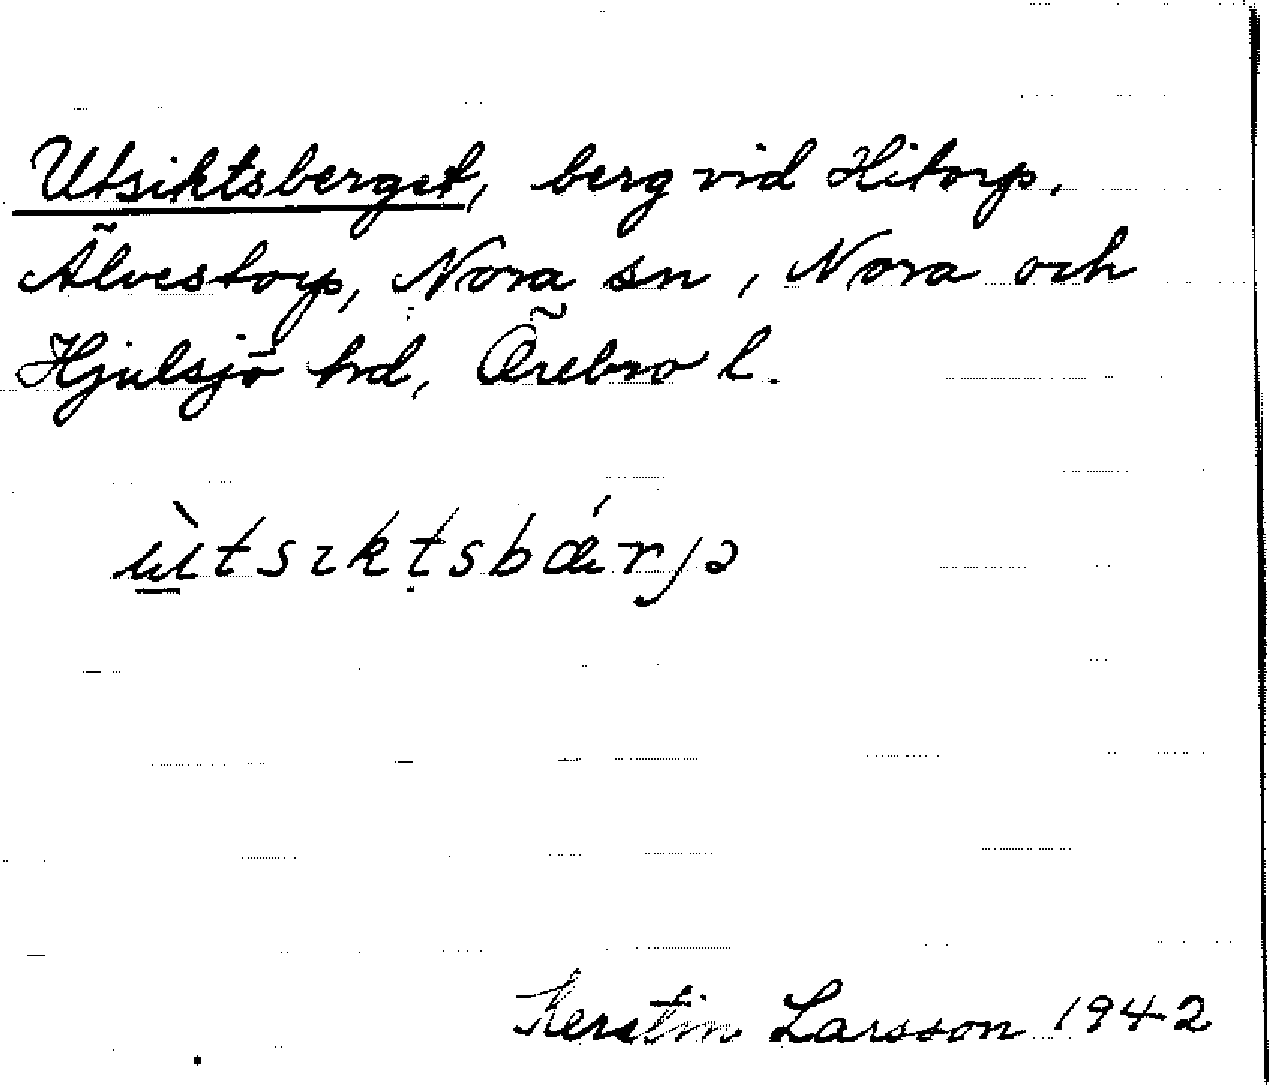 Utsiktsberget, berg vid Hitorp,
Älvestorp, Nora sn, Nora och
Hjulsjö hd, Örebro l.
ù̱tsıktsbǽrjə
Kerstin Larsson 1942